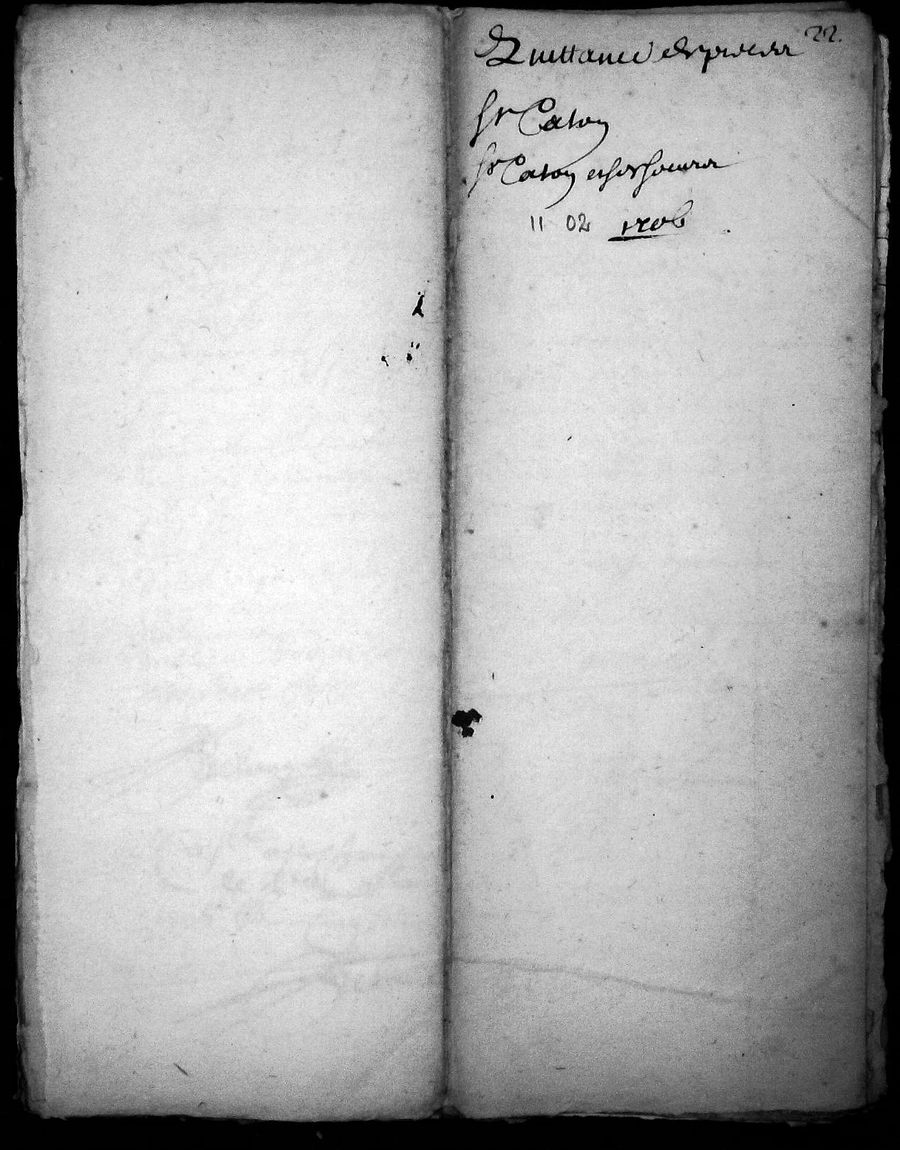 22.
Quittance de procur
Sr Caton
Sr Caton et ses soeurs
11 02 1706